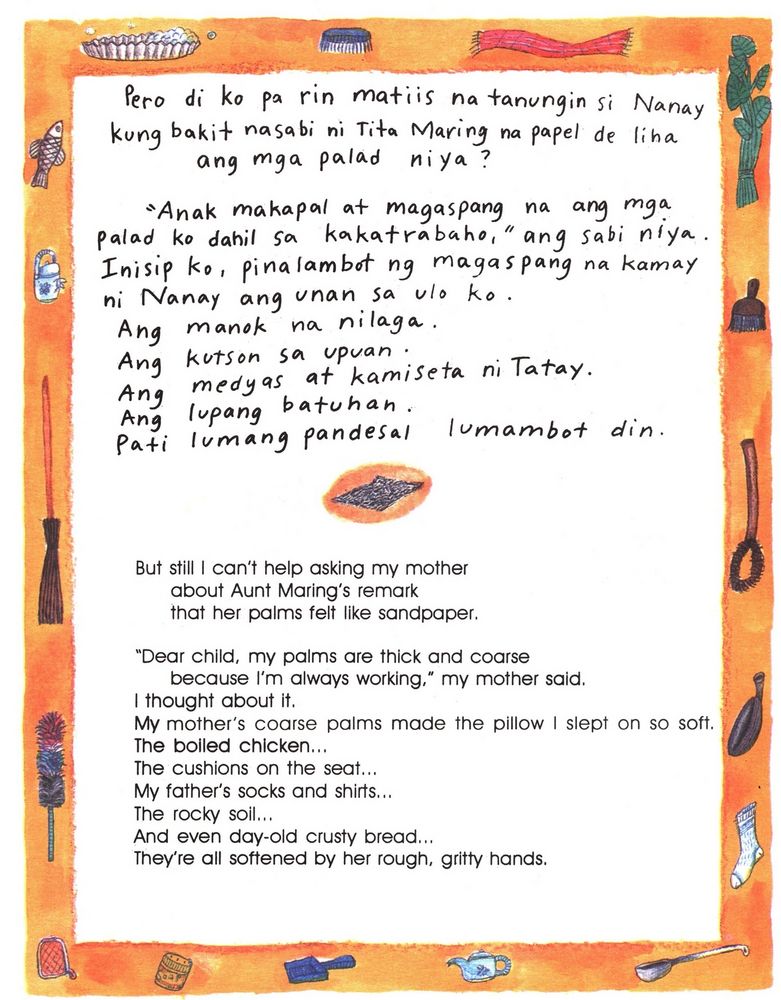 Pero di ko pa rin matiis na tanungin si Nanay
kung bakit nasabi ni Tita Maring na papel de liha
ang mga palad niya?
"Anak makapal at magaspang na ang mga
palad ko dahil sa kakatrabaho," ang sabi niya.
Inisip ko, pinalambot ng magaspang na kamay
ni Nanay ang unan sa ulo ko.
Ang manok na nilaga.
Ang kutson sa upuan.
Ang medyas at kamiseta ni Tatay.
Ang lupang batuhan.
Pati lumang pandesal lumambot din.
But still I can't help asking my mother
about Aunt Maring's remark
that her palms felt like sandpaper.
"Dear child, my palms are thick and coarse
because I'm always working," my mother said.
I thought about it.
My mother's coarse palms made the pillow I slept on so soft.
The boiled chicken...
The cushions on the seat...
My father's socks and shirts...
The rocky soil...
And even day-old crusty bread...
They're all softened by her rough, gritty hands.